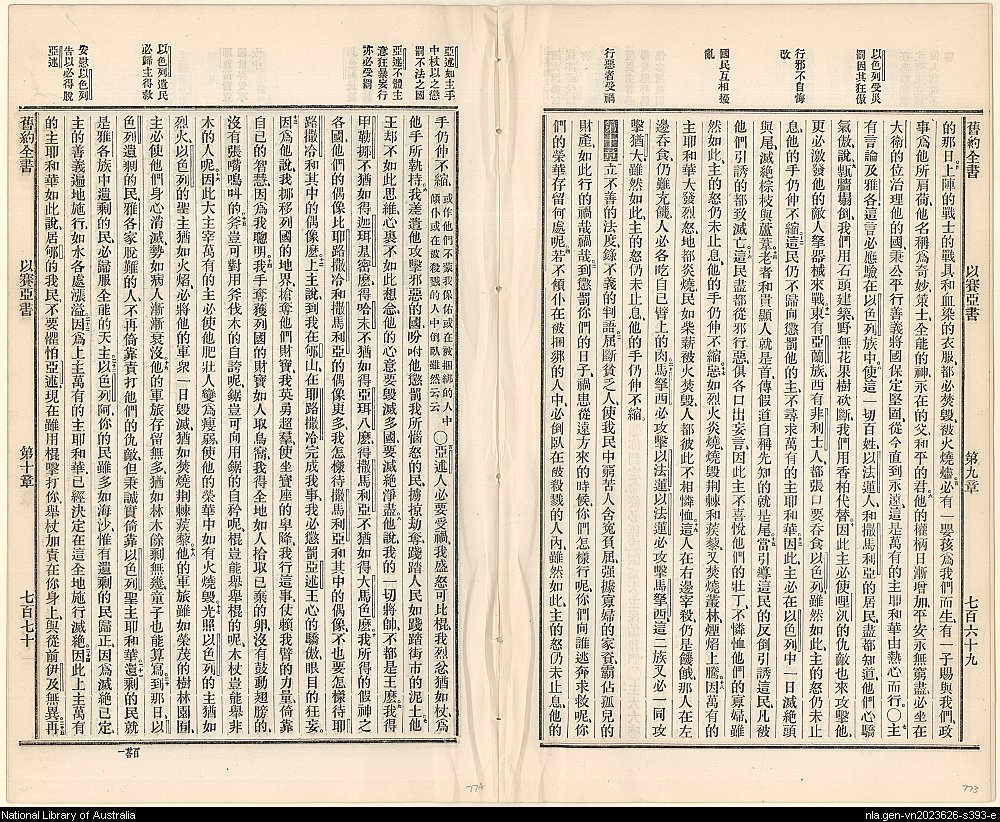 以色列受災
罰因其狂傲
行邪不自悔
改
國民互相擾
亂
行惡者受禍
舊約全書 以賽亞書 第九章 七百六十九
的那日上陣的戰士的戰具和血染的衣服都必焚毀被火燒燼必有一嬰孩爲我們而生有一子賜與我們政
事爲他所肩荷他名稱爲奇妙策士全能的神永在的父和平的君他的權柄日漸增加平安永無窮盡必坐在
大衛的位治理他的國秉公平行善義將國保定堅固從今直到永遠這是萬有的主耶和華由熱心而行〇主
有言論及雅各這言必應驗在以色列族中使這一切百姓以法蓮人和撒馬利亞的居民盡都知道他們心驕
氣傲說甎牆塌倒我們用石頭建築野無花果樹砍斷我們用香柏代替因此主必使哩汛的仇敵也來攻擊他
更必激發他的敵人擎器械來戰東有亞蘭族西有非利士人都張口要吞食以色列雖然如此主的怒仍未止
息他的手仍伸不縮這民仍不歸向懲罰他的主不尋求萬有的主耶和華因此主必在以色列中一日滅絕頭
與尾滅絕棕枝與蘆葦老者和貴顯人就是首傳假道自稱先知的就是尾當引導這民的反倒引誘這民凡被
他們引誘的都致滅亡這民盡都從邪行惡俱各口出妄言因此主不喜悅他們的壯丁不憐恤他們的寡婦雖
然如此主的怒仍未止息他的手仍伸不縮惡如烈火炎燒燒毀荆棘和蒺藜又焚燒叢林煙焰上騰因萬有的
主耶和華大發烈怒地都炎燒民如柴薪被火焚燬人都彼此不相憐恤這人在右邊宰殺仍是饑餓那人在左
邊吞食仍難充饑人必各吃自己臂上的肉馬拏西必攻擊以法蓮以法蓮必攻擊馬拏西這二族又必一同攻
擊猶大雖然如此主的怒仍未止息他的手仍伸不縮
第十章立不善的法度錄不義的判語屈斷貧乏之人使我民中窮苦人含寃負屈强據寡婦的家資霸佔孤兒的
財產如此行的禍哉禍哉到懲罰你們的日子禍患從遠方來的時候你們怎樣行呢你們向誰逃奔求救呢你
們的榮華存留何處呢若不傾仆在被捆綁的人中必倒臥在被殺戮的人內雖然如此主的怒仍未止息他的
亞述如主手
中杖以之懲
罰不法之國
亞述不體主
意狂暴妄行
亦必受罰
以色列遺民
必歸主得救
安慰以色列
告以必得脫
亞述
手仍伸不縮或作他們不蒙我保佑或在被捆綁的人中傾仆或在被殺戮的人中倒臥雖然云云〇亞述人必要受禍我盛怒可比棍我烈忿猶如杖爲
他手所執持我差遣他攻擊邪惡的國吩咐他懲罰我所惱怒的民擄掠劫奪踐踏人民如踐踏街市的泥土他
王却不如此思維心裏不如此想念他的心意要毀滅多國要滅絕淨盡他說我的一切將帥不都是王麽我得
甲勒挪不猶如得迦珥基密麽得哈末不猶如得亞珥八麽得撒馬利亞不猶如得大馬色麽我所得的假神之
各國他們的偶像比耶路撒冷和撒馬利亞的偶像更多我怎樣待撒馬利亞和其中的偶像不也要怎樣待耶
路撒冷和其中的偶像麽上主說到我在郇山在耶路撒冷完成我事我必懲罰亞述王心的驕傲眼目的狂妄
因爲他說我挪移列國的地界搶奪他們財寶我英勇超羣使坐寶座的皁降我行這事仗賴我臂的力量倚靠
自己的智慧因爲我聰明我手奪獲列國的財寶如人取鳥窩我得全地如人拾取已棄的卵沒有鼓動翅膀的
沒有張嘴鳴叫的斧豈可對用斧伐木的自誇呢鋸豈可向用鋸的自矜呢棍豈能舉舉棍的呢木杖豈能舉非
木的人呢因此大主宰萬有的主必使他肥壯人變爲瘦弱使他的榮華中如有火燒毀光照以色列的主猶如
烈火以色列的聖主猶如火焰必將他的軍衆一日毀滅猶如焚燒荆棘蒺藜他的軍旅雖如榮茂的樹林園囿
主必使他們身心消滅勢如病人漸漸衰沒他的軍旅存留無多猶如林木餘剩無幾童子也能算寫到那日以
色列遺剩的民雅各家脫難的人不再倚靠責打他們的仇敵但秉誠實倚靠以色列聖主耶和華遺剩的民就
是雅各族中遺剩的民必歸服全能的天主以色列阿你的民雖多如海沙惟有遺剩的民歸正因爲滅絕已定
主的善義遍地施行如水各處漲溢因爲上主萬有的主耶和華已經決定在這全地施行滅絕因此上主萬有
的主耶和華如此說居郇的我民不要懼怕亞述現在雖用棍擊打你舉杖加責在你身上與從前伊及無異再
舊約全書 以賽亞書 第十章 七百七十
百零一
774
773
National Library of Australia
nla.gen-vn2023626-s393-e